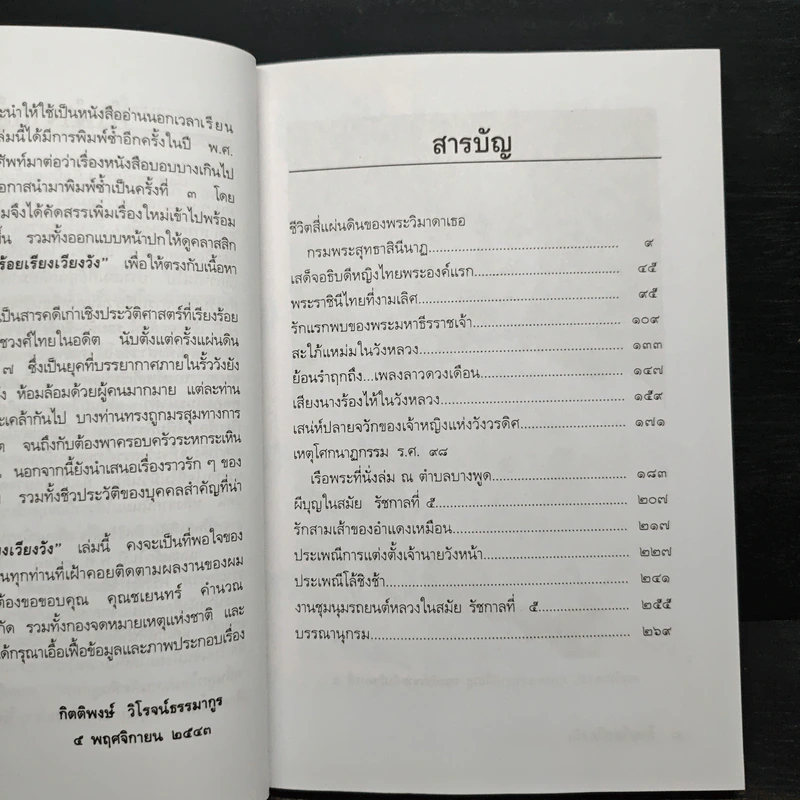 ะนำให้ใช้เป็นหนังสืออ่านนอกเวลาเรียน
ล่มนี้ได้มีการพิมพ์ซ้ำอีกครั้งในปี พ.ศ.
ศัพท์มาต่อว่าเรื่องหนังสือบอบบางเกินไป
อกาสนำมาพิมพ์ซ้ำเป็นครั้งที่ ๓ โดย
มจึงได้คัดสรรเพิ่มเรื่องใหม่เข้าไปพร้อม
ั้น รวมทั้งออกแบบหน้าปกให้ดูคลาสสิก
ร้อยเรียงเวียงวัง” เพื่อให้ตรงกับเนื้อหา
เป็นสารคดีเก่าเชิงประวัติศาสตร์ที่เรียงร้อย
ชวงศ์ไทยในอดีต นับตั้งแต่ครั้งแผ่นดิน
๗ ซึ่งเป็นยุคที่บรรยากาศภายในรั้ววังยัง
ห้อมล้อมด้วยผู้คนมากมาย แต่ละท่าน
ะเคล้ากันไป บางท่านทรงถูกมรสุมทางการ
ต จนถึงกับต้องพาครอบครัวระหกระเหิน
นอกจากนี้ยังนำเสนอเรื่องราวรัก ๆ ของ
รวมทั้งชีวประวัติของบุคคลสำคัญที่น่า
งเวียงวัง” เล่มนี้ คงจะเป็นที่พอใจของ
นทุกท่านที่เฝ้าคอยติดตามผลงานของผม
ต้องขอขอบคุณ คุณชเยนทร์ คำนวณ
กัด รวมทั้งกองจดหมายเหตุแห่งชาติ และ
ด้กรุณาเอื้อเฟื้อข้อมูลและภาพประกอบเรื่อง
กิตติพงษ์ วิโรจน์ธรรมากูร
๕ พฤศจิกายน ๒๕๔๓
สารบัญ
ชีวิตสี่แผ่นดินของพระวิมาดาเธอ
กรมพระสุทธาสินีนาฏ.......... ๙
เสด็จอธิบดีหญิงไทยพระองค์แรก.......... ๔๕
พระราชินีไทยที่งามเลิศ.......... ๙๕
รักแรกพบของพระมหาธีรราชเจ้า.......... ๑๐๙
สะใภ้แหม่มในวังหลวง.......... ๑๓๓
ย้อนรำฤกถึง...เพลงลาวดวงเดือน.......... ๑๔๗
เสียงนางร้องไห้ในวังหลวง.......... ๑๕๙
เสน่ห์ปลายจวักของเจ้าหญิงแห่งวังวรดิศ.......... ๑๗๑
เหตุโศกนาฏกรรม ร.ศ. ๙๘
เรือพระที่นั่งล่ม ณ ตำบลบางพูด.......... ๑๘๓
ผีบุญในสมัย รัชกาลที่ ๕.......... ๒๐๗
รักสามเส้าของอำแดงเหมือน.......... ๒๑๗
ประเพณีการแต่งตั้งเจ้านายวังหน้า.......... ๒๒๗
ประเพณีโล้ชิงช้า.......... ๒๔๑
งานชุมนุมรถยนต์หลวงในสมัย รัชกาลที่ ๕.......... ๒๕๕
บรรณานุกรม.......... ๒๖๙